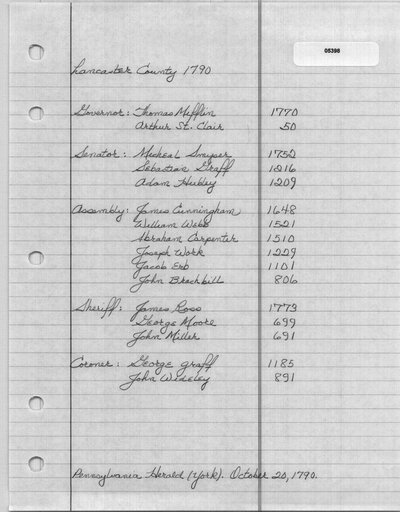 05398
Lancaster County 1790
Governor: Thomas Mifflin 1770
Arthur St. Clair 50
Senator: Micheal Smyser 1752
Sebastian Graff 1216
Adam Hubley 1209
Assembly: James Cunningham 1648
William Webb 1521
Abraham Carpenter 1510
Joseph Work 1229
Jacob Erb 1101
John Brackbill 806
Sheriff: James Ross 1773
George Moore 699
John Miller 691
Coroner: George Graff 1185
John 891
Pennsylvania Herald (York). October 20, 1790.